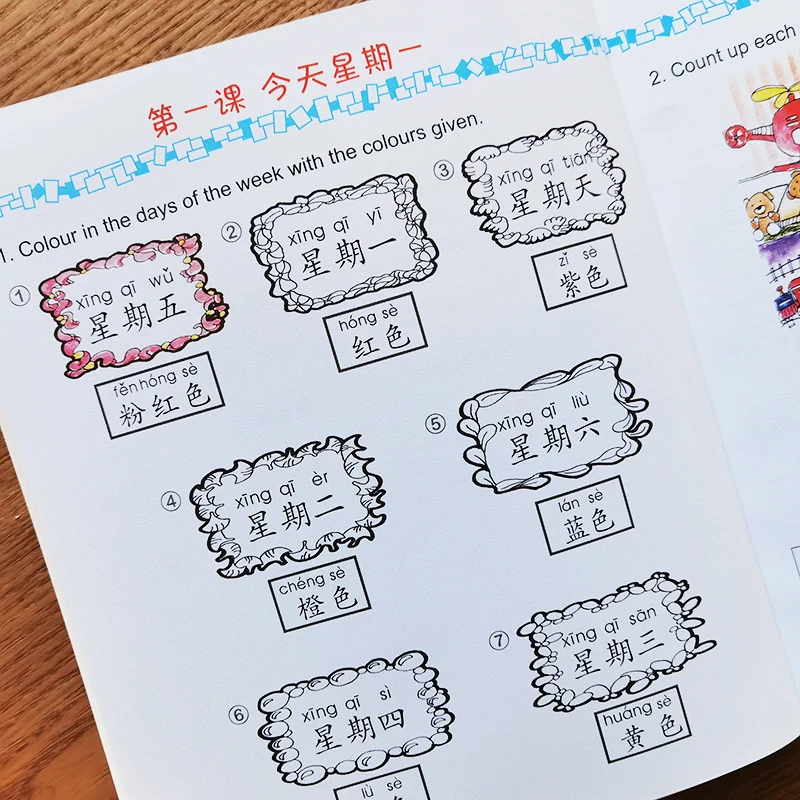 第一课 今天星期一
1. Colour in the days of the week with the colours given.
①
xīng qī wǔ
星期五
fěn hóng sè
粉红色
②
xīng qī yī
星期一
hóng sè
红色
③
xīng qī tiān
星期天
zǐ sè
紫色
④
xīng qī èr
星期二
chéng sè
橙色
⑤
xīng qī liù
星期六
lán sè
蓝色
⑥
xīng qī sì
星期四
lǜ sè
⑦
xīng qī sān
星期三
huáng sè
黄色
2. Count up each